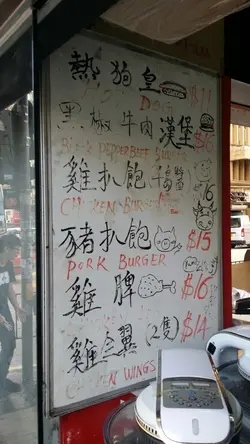 熱狗皇
DOG
$11
黑椒牛肉漢堡
BLACK PEPPER BEEF BURGER
雞扒飽
CHICKEN BURGER
$16
豬扒飽 $15
PORK BURGER
雞髀 $16
雞全翼(2隻) $14
CHICKEN WINGS